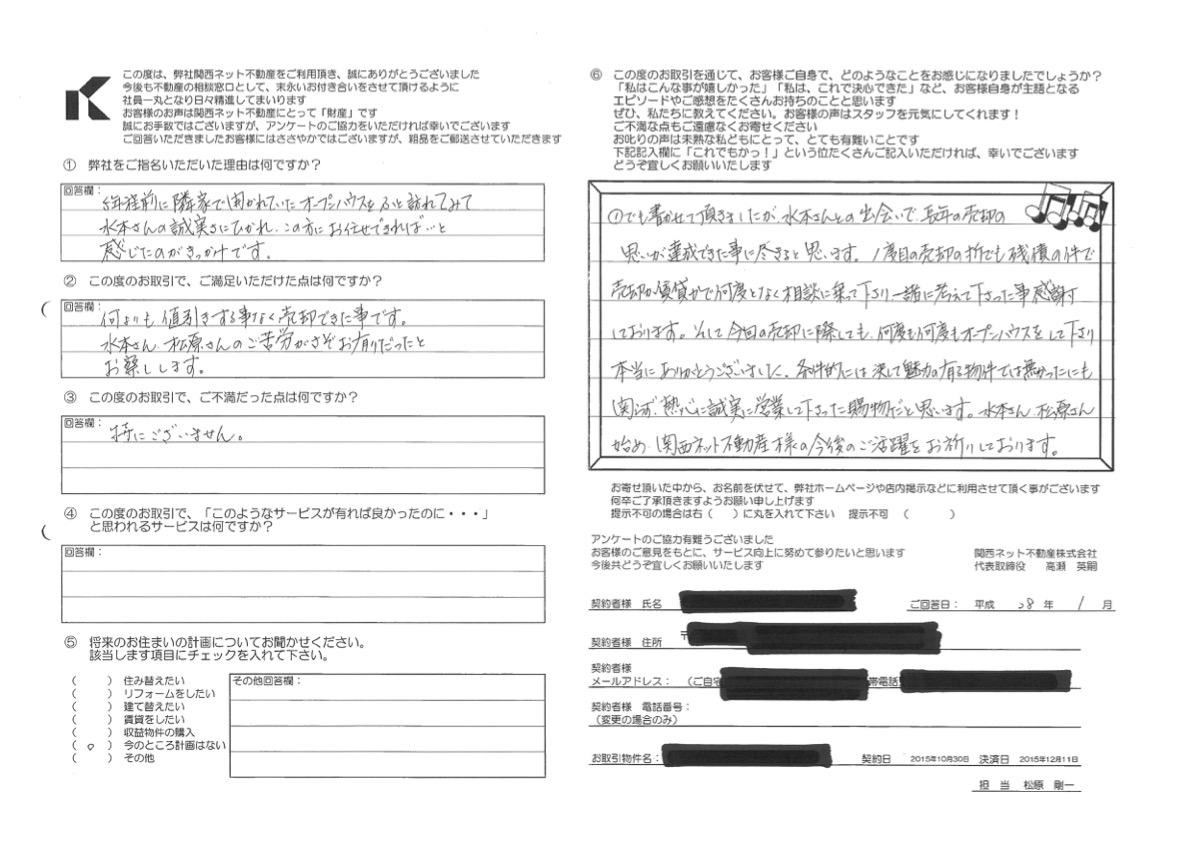 この度は、弊社関西ネット不動産をご利用頂き、誠にありがとうございました
今後も不動産の相談窓口として、末永いお付き合いをさせて頂けるように
社員一丸となり日々精進してまいります
お客様のお声は関西ネット不動産にとって「財産」です
誠にお手数ではございますが、アンケートのご協力をいただければ幸いでございます
ご回答いただきましたお客様にはささやかではございますが、粗品をご郵送させていただきます
① 弊社をご指名いただいた理由は何ですか?
回答欄:
5年程前に隣家で開かれていたオープンハウスをふと訪れてみて
水本さんの誠実さにひかれ、この方にお任せできれば…と
感じたのがきっかけです。
② この度のお取引で、ご満足いただけた点は何ですか?
回答欄:
何よりも値引きする事なく売却できた事です。
水本さん、松原さんのご苦労がさぞお有りだったと
お察しします。
③ この度のお取引で、ご不満だった点は何ですか?
回答欄:
特にございません。
④ この度のお取引で、「このようなサービスが有れば良かったのに・・・」
と思われるサービスは何ですか?
回答欄:
⑤ 将来のお住まいの計画についてお聞かせください。
該当します項目にチェックを入れて下さい。
( ) 住み替えたい
( ) リフォームをしたい
( ) 建て替えたい
( ) 賃貸をしたい
( ) 収益物件の購入
( ○ ) 今のところ計画はない
( ) その他
その他回答欄:
⑥ この度のお取引を通じて、お客様ご自身で、どのようなことをお感じになりましたでしょうか?
「私はこんな事が嬉しかった」「私は、これで決心できた」など、お客様自身が主語となる
エピソードやご感想をたくさんお持ちのことと思います
ぜひ、私たちに教えてください。お客様の声はスタッフを元気にしてくれます!
ご不満な点もご遠慮なくお寄せください
お叱りの声は未熟な私どもにとって、とても有難いことです
下記記入欄に「これでもかっ!」という位たくさんご記入いただければ、幸いでございます
どうぞ宜しくお願いいたします
①でも書かせて頂きましたが、水本さんとの出会いで、長年の売却の
思いが達成できた事に尽きると思います。1度目の売却の折でも残債の件で
売却か賃貸かで何度となく相談に乗って下さり一緒に考えて下さった事感謝
しております。そして今回の売却に際しても、何度も何度もオープンハウスをして下さり
本当にありがとうございました。条件的には決して魅力の有る物件では無かったにも
関らず、熱心に誠実に営業して下さった賜物だと思います。水本さん、松原さん
始め、関西ネット不動産様の今後のご活躍をお祈りしております。
お寄せ頂いた中から、お名前を伏せて、弊社ホームページや店内掲示などに利用させて頂く事がございます
何卒ご了承頂きますようお願い申し上げます
提示不可の場合は右( )に丸を入れて下さい 提示不可 ( )
アンケートのご協力有難うございました
お客様のご意見をもとに、サービス向上に努めて参りたいと思います
今後共どうぞ宜しくお願いいたします
関西ネット不動産株式会社
代表取締役 高瀬 英嗣
契約者様 氏名
ご回答日: 平成 28 年 1 月
契約者様 住所 〒
契約者様
メールアドレス: (ご自宅 帯電話
契約者様 電話番号:
(変更の場合のみ)
お取引物件名: 契約日 2015年10月30日 決済日 2015年12月11日
担 当 松原 剛一